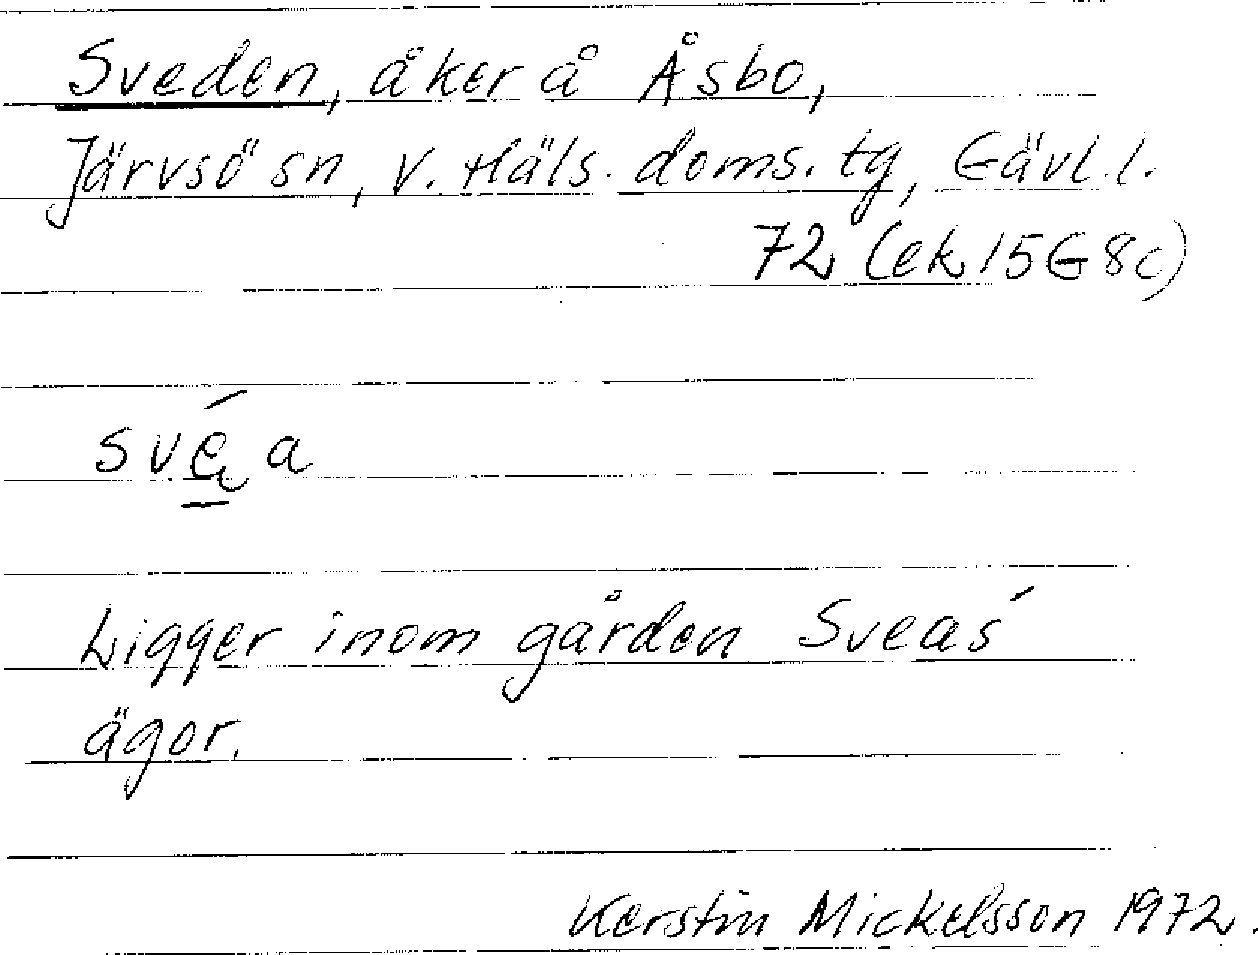 Sveden, åker å Åsbo,
Järvsö sn, v. Häls. doms. tg, Gävl. l.
72 (ek 15G 8c)
své̱ a
Ligger inom gården Sveas´
ägor.
Kerstin Mickelsson 1972.